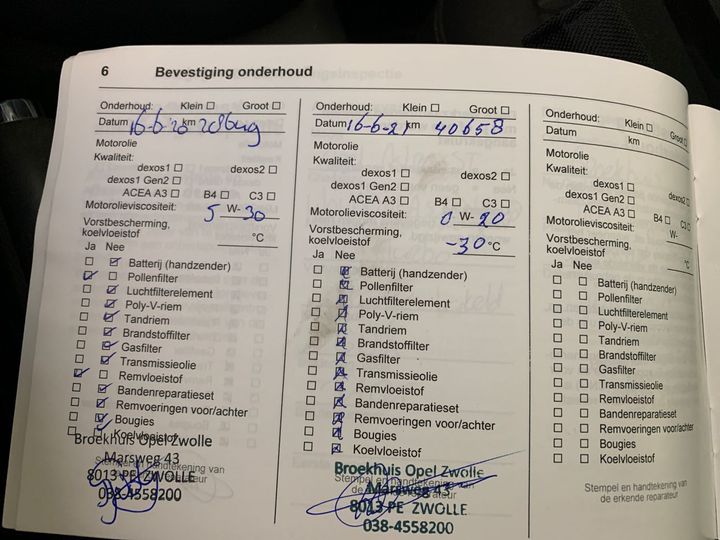 6 Bevestiging onderhoud
Onderhoud: Klein Groot
Datum 16-6-20 km
Motorolie
Kwaliteit:
dexos1 dexos2
dexos1 Gen2
ACEA A3 B4 C3
Motorolieviscositeit: 5 W- 30
Vorstbescherming,
koelvloeistof °C
Ja Nee
Batterij (handzender)
Pollenfilter
Luchtfilterelement
Poly-V-riem
Tandriem
Brandstoffilter
Gasfilter
Transmissieolie
Remvloeistof
Bandenreparatieset
Remvoeringen voor/achter
Bougies
Koelvloeistof
Broekhuis Opel Zwolle
Marsweg 43
Stempel en handtekening van
8013 PE ZWOLLE
038-4558200
Onderhoud: Klein Groot
Datum 16-6-21 km 40658
Motorolie
Kwaliteit:
dexos1 dexos2
dexos1 Gen2
ACEA A3 B4 C3
Motorolieviscositeit: 0 W- 20
Vorstbescherming,
koelvloeistof -30 °C
Ja Nee
Batterij (handzender)
Pollenfilter
Luchtfilterelement
Poly-V-riem
Tandriem
Brandstoffilter
Gasfilter
Transmissieolie
Remvloeistof
Bandenreparatieset
Remvoeringen voor/achter
Bougies
Koelvloeistof
Broekhuis Opel Zwolle
Stempel en handtekening van
Marsweg 43
8013 PE ZWOLLE
038-4558200
Onderhoud: Klein Groot
Datum km
Motorolie
Kwaliteit:
dexos1 dexos2
dexos1 Gen2
ACEA A3 B4 C3
Motorolieviscositeit: W-
Vorstbescherming,
koelvloeistof °C
Ja Nee
Batterij (handzender)
Pollenfilter
Luchtfilterelement
Poly-V-riem
Tandriem
Brandstoffilter
Gasfilter
Transmissieolie
Remvloeistof
Bandenreparatieset
Remvoeringen voor/achter
Bougies
Koelvloeistof
Stempel en handtekening van
de erkende reparateur